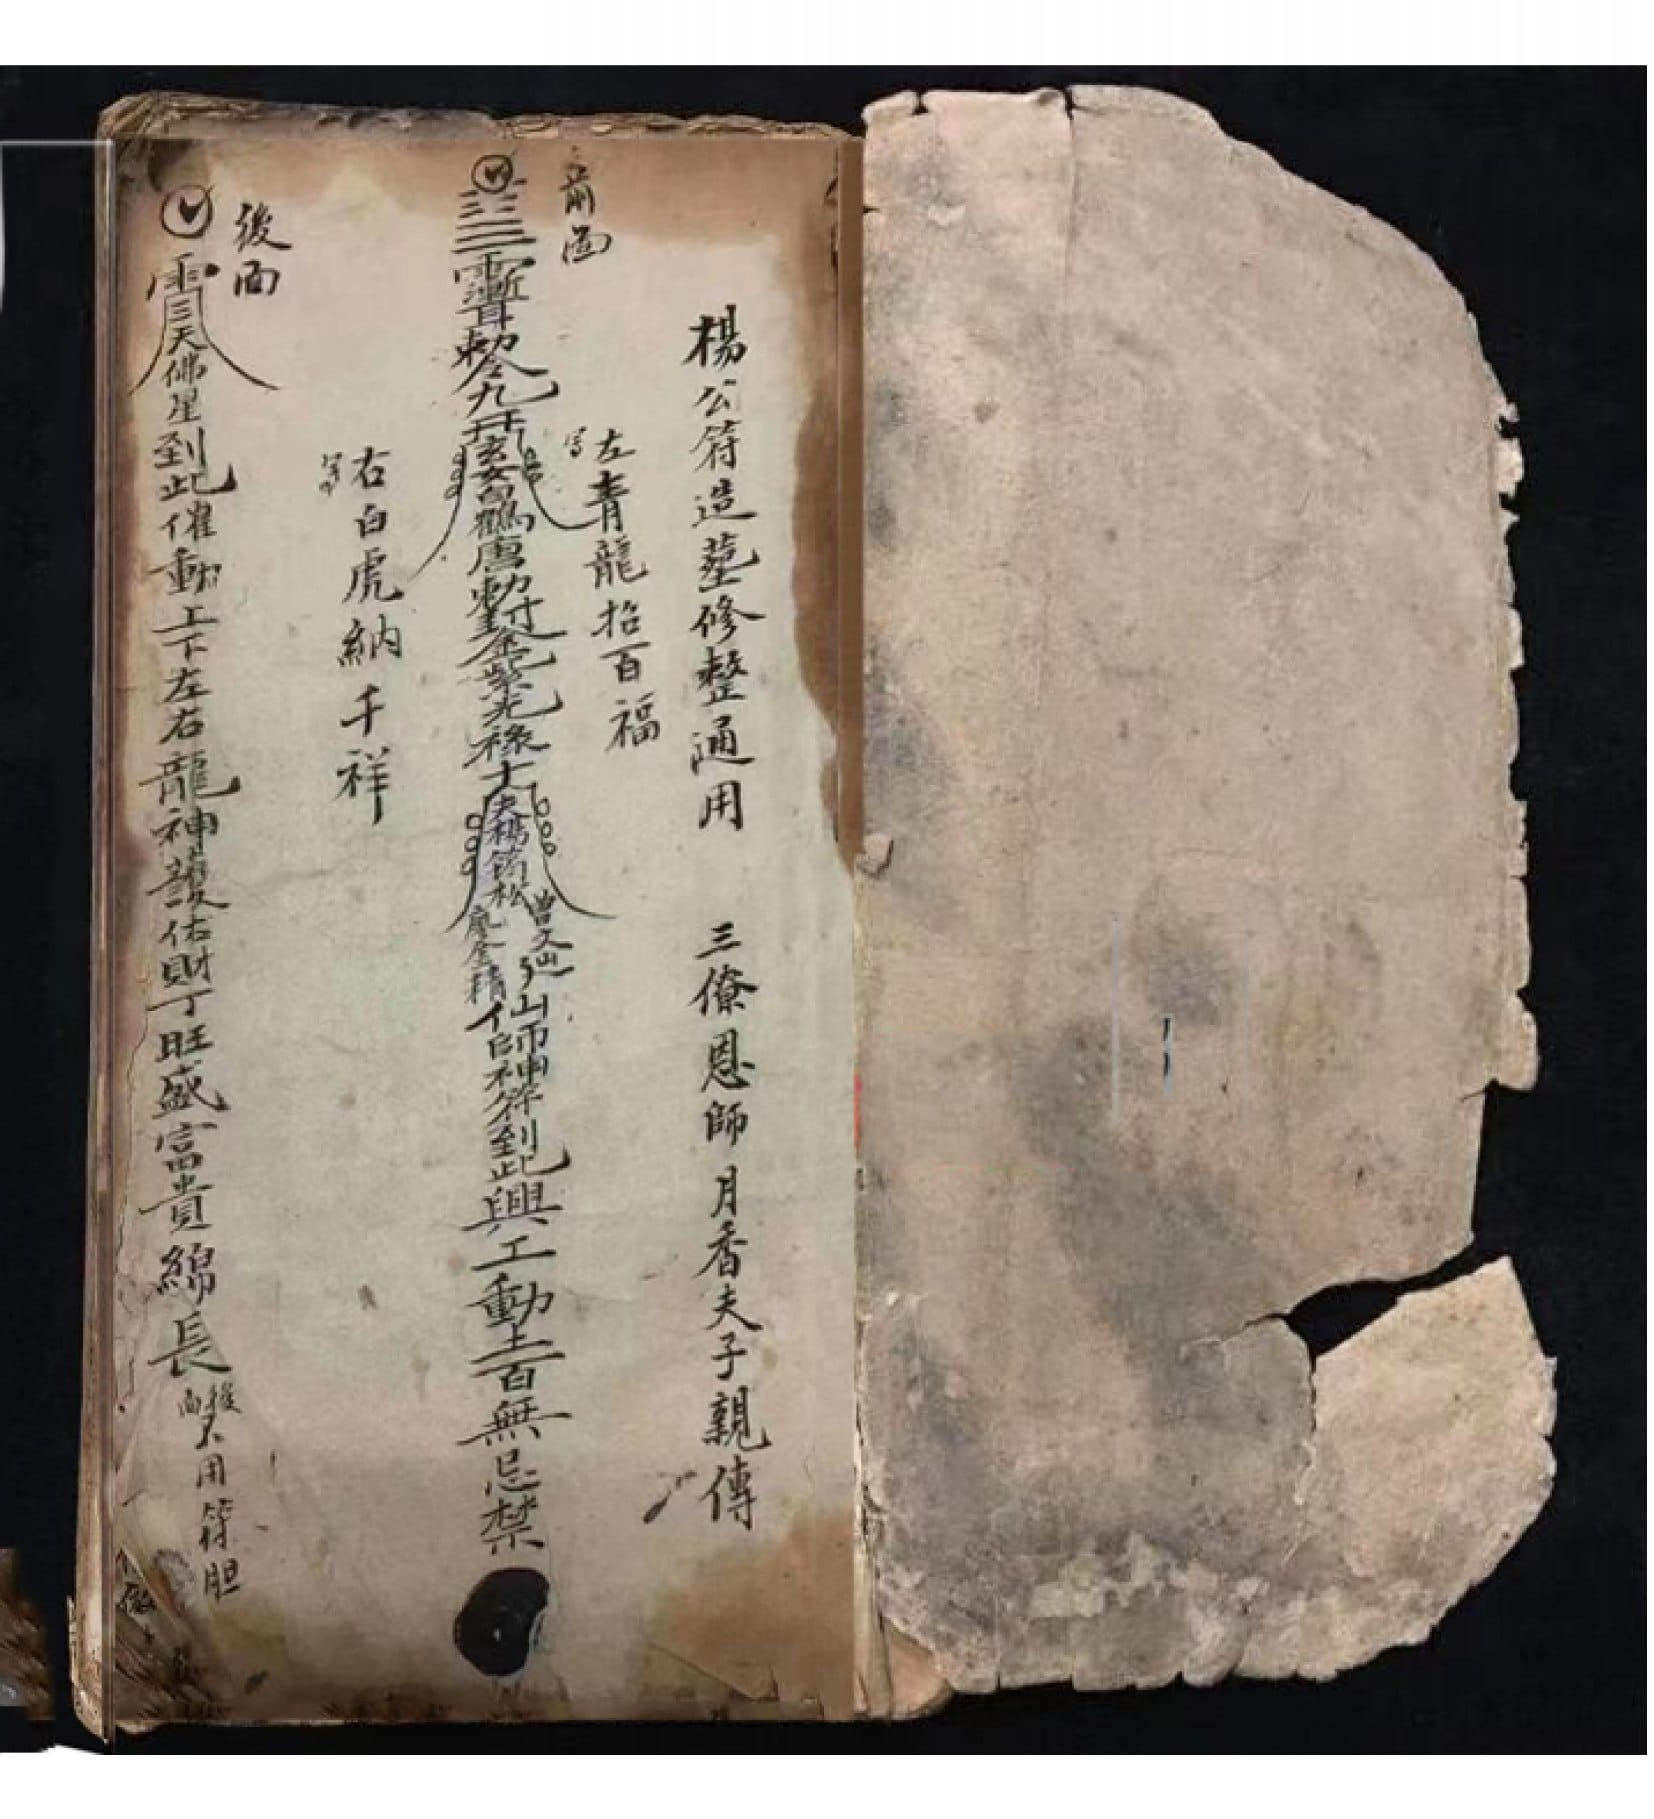 楊公符造墓修整通用 三僚恩師月香夫子親傳
前面
左青龍招百福
敕令九天玄女白鶴唐敕封金紫光祿大夫楊筠松
曾文辿
廖金精
仙師神符到此興工動土百無忌禁
右白虎納千祥
後面
天佛星到此催動上下左右龍神護佑財丁旺盛富貴綿長
後面不用符胆